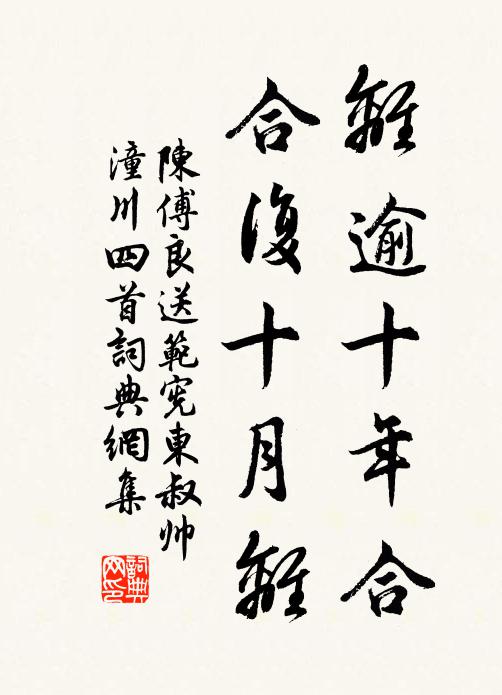 離逾十年合
合復十月離
陳傅良送範憲東叔帥
潼川四首詞典網集
詞典网印